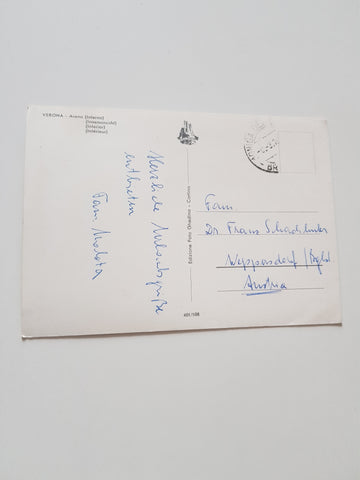 VERONA - Arena (Interno)
(Innenansicht)
(Interior)
(Intérieur)
Herzliche Urlaubsgrüße
entbieten
Fam.
Edizione Foto Ghedina - Cortina
401/108
Fam
Dr Franz
Weppersdorf / Bgld
Austria